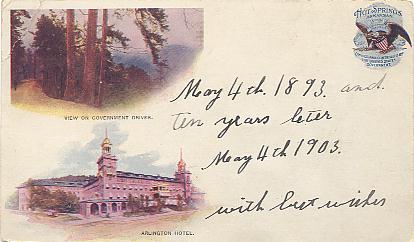 HOT SPRINGS
ARKANSAS
VIEW ON GOVERNMENT DRIVES.
May 4th. 1893. and.
ten years leter
May 4th 1903.
with best wishes
ARLINGTON HOTEL.